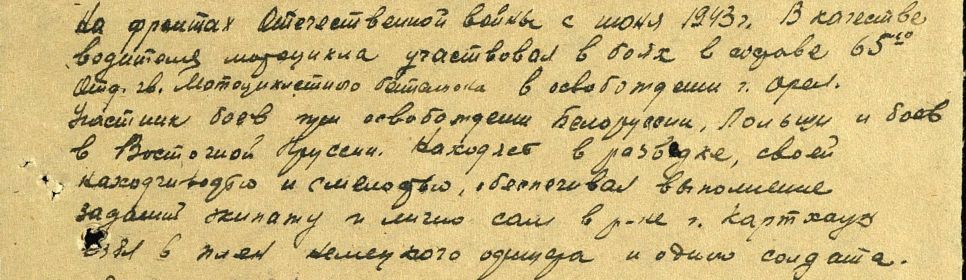 На фронтах Отечественной войны с июня 1943 г. В качестве
водителя мотоцикла участвовал в боях в составе 65го
Отд. гв. Мотоциклетного батальона в освобождении г. Орел.
Участник боев при освобождении Белоруссии, Польши и боев
в Восточной Пруссии. Находясь в разведке, своей
находчивостью и смелостью, обеспечивал выполнение
заданий экипажу и лично сам в р-не г. Картхауз
взял в плен немецкого офицера и одного солдата.